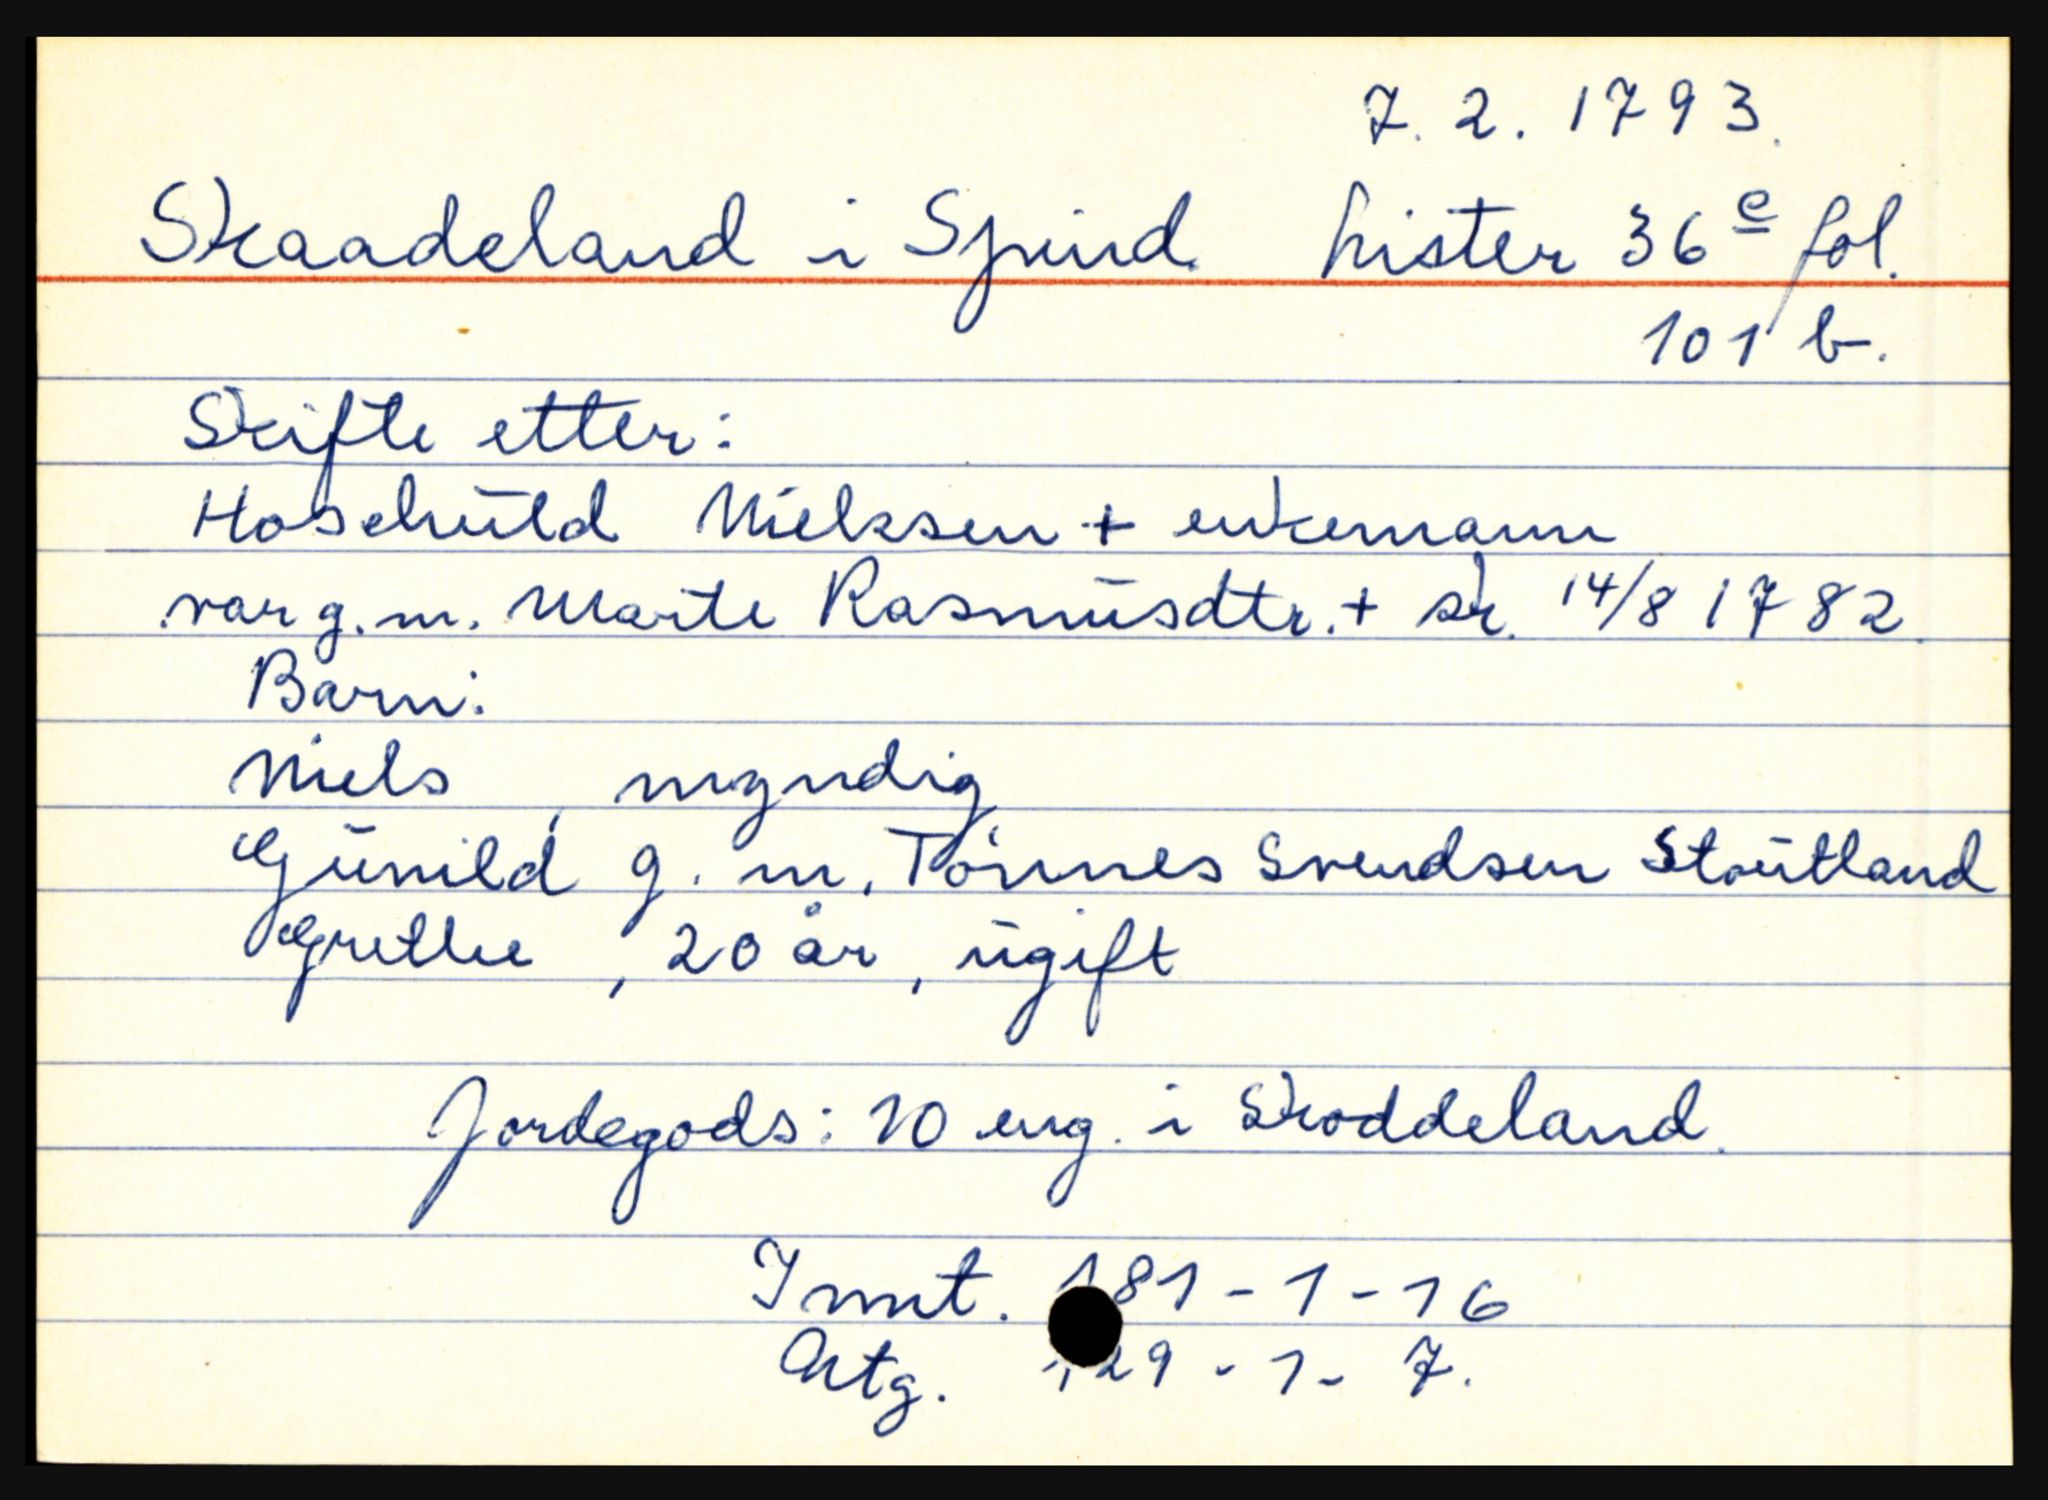 7.2.1793.
Skaadeland i Spind. Lister 36 e fol.
101 b.
Skifte etter:
Hoschuld Nielssen + enkemann
var g.m. Marte Rasmusdtr. + sk. 14/8 1782.
Barn:
Niels, myndig
Gunild g.m. Tönnes Svendsen Stoutland
Grethe, 20 år, ugift
Jordegods: 10 eng. i Skoddeland.
Innt. 181-1-16
Utg. 129-1-7.